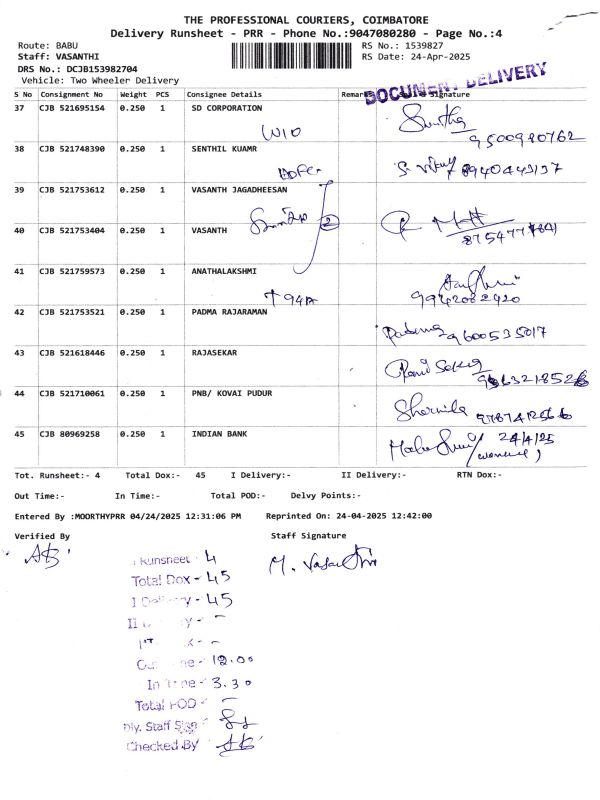 THE PROFESSIONAL COURIERS, COIMBATORE
Delivery Runsheet - PRR - Phone No.:9047080280 - Page No.:4
Route: BABU
Staff: VASANTHI
RS No.: 1539827
RS Date: 24-Apr-2025
DRS No.: DCJB153982704
Vehicle: Two Wheeler Delivery
DOCUMENT DELIVERY
S No Consignment No Weight PCS Consignee Details Remarks Signature
37 CJB 521695154 0.250 1 SD CORPORATION
W10
9500980762
38 CJB 521748390 0.250 1 SENTHIL KUAMR
39 CJB 521753612 0.250 1 VASANTH JAGADHEESAN
2
40 CJB 521753404 0.250 1 VASANTH
41 CJB 521759573 0.250 1 ANATHALAKSHMI
9942082920
42 CJB 521753521 0.250 1 PADMA RAJARAMAN
Padma 9600535017
43 CJB 521618446 0.250 1 RAJASEKAR
44 CJB 521710061 0.250 1 PNB/ KOVAI PUDUR
Sharmila
45 CJB 80969258 0.250 1 INDIAN BANK
24/4/25
Tot. Runsheet:- 4 Total Dox:- 45 I Delivery:- II Delivery:- RTN Dox:-
Out Time:- In Time:- Total POD:- Delvy Points:-
Entered By :MOORTHYPRR 04/24/2025 12:31:06 PM Reprinted On: 24-04-2025 12:42:00
Verified By Staff Signature
Runsheet - 4
Total Dox - 45
I Delivery - 45
12.00
In Time - 3.30
Total POD -
Dly. Staff Sign
Checked By